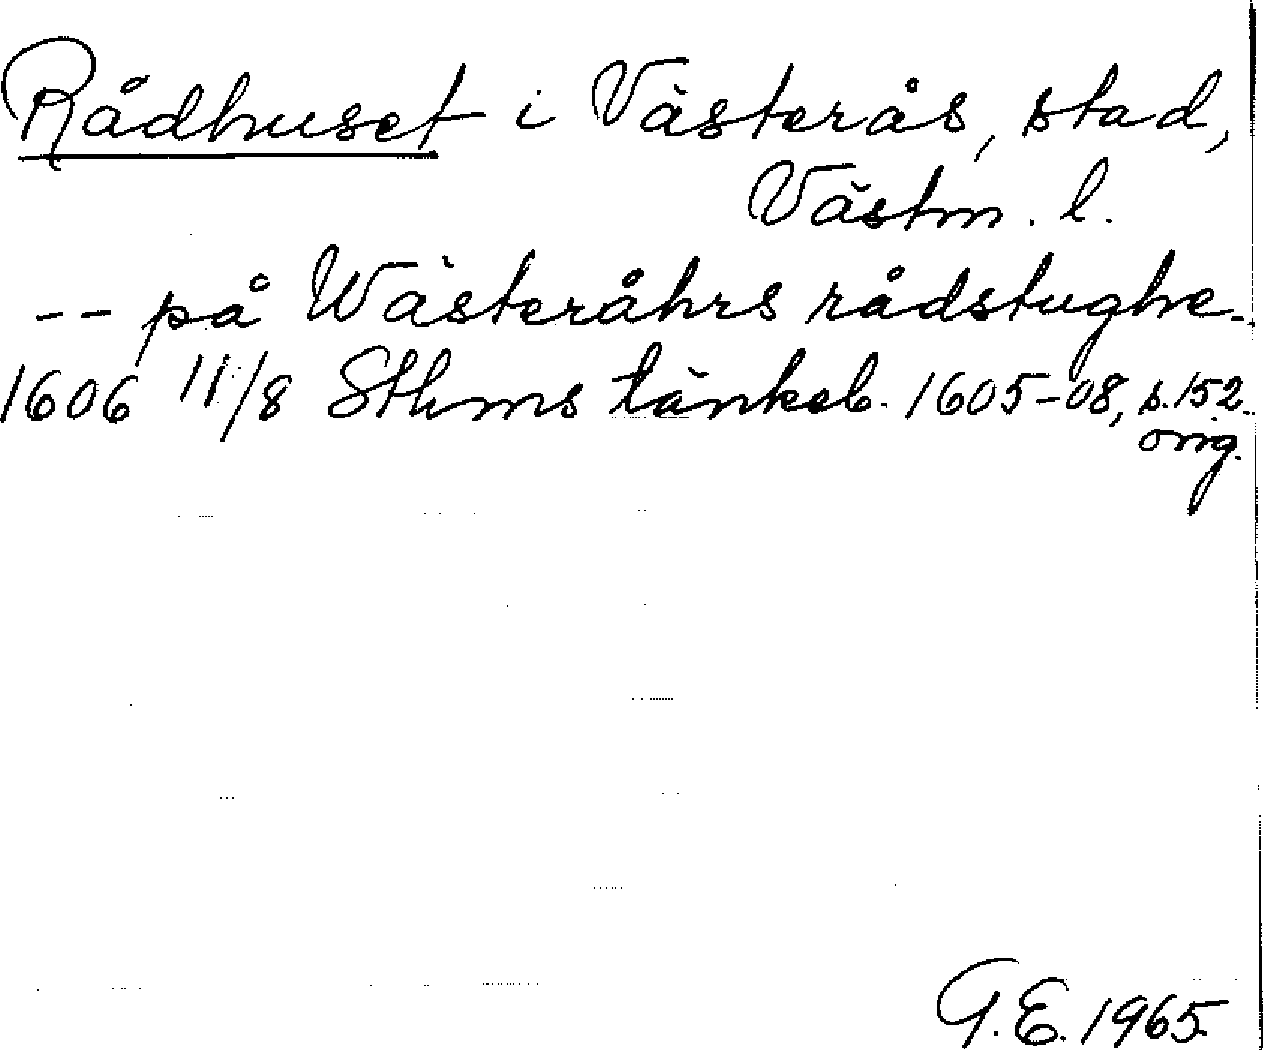 Rådhuset i Västerås, stad,
Västm. l.
-- på Wästeråhrs rådstughe--
1606 11/8 Sthms tänkeb. 1605-08, s.152.
orig.
G.E. 1965.